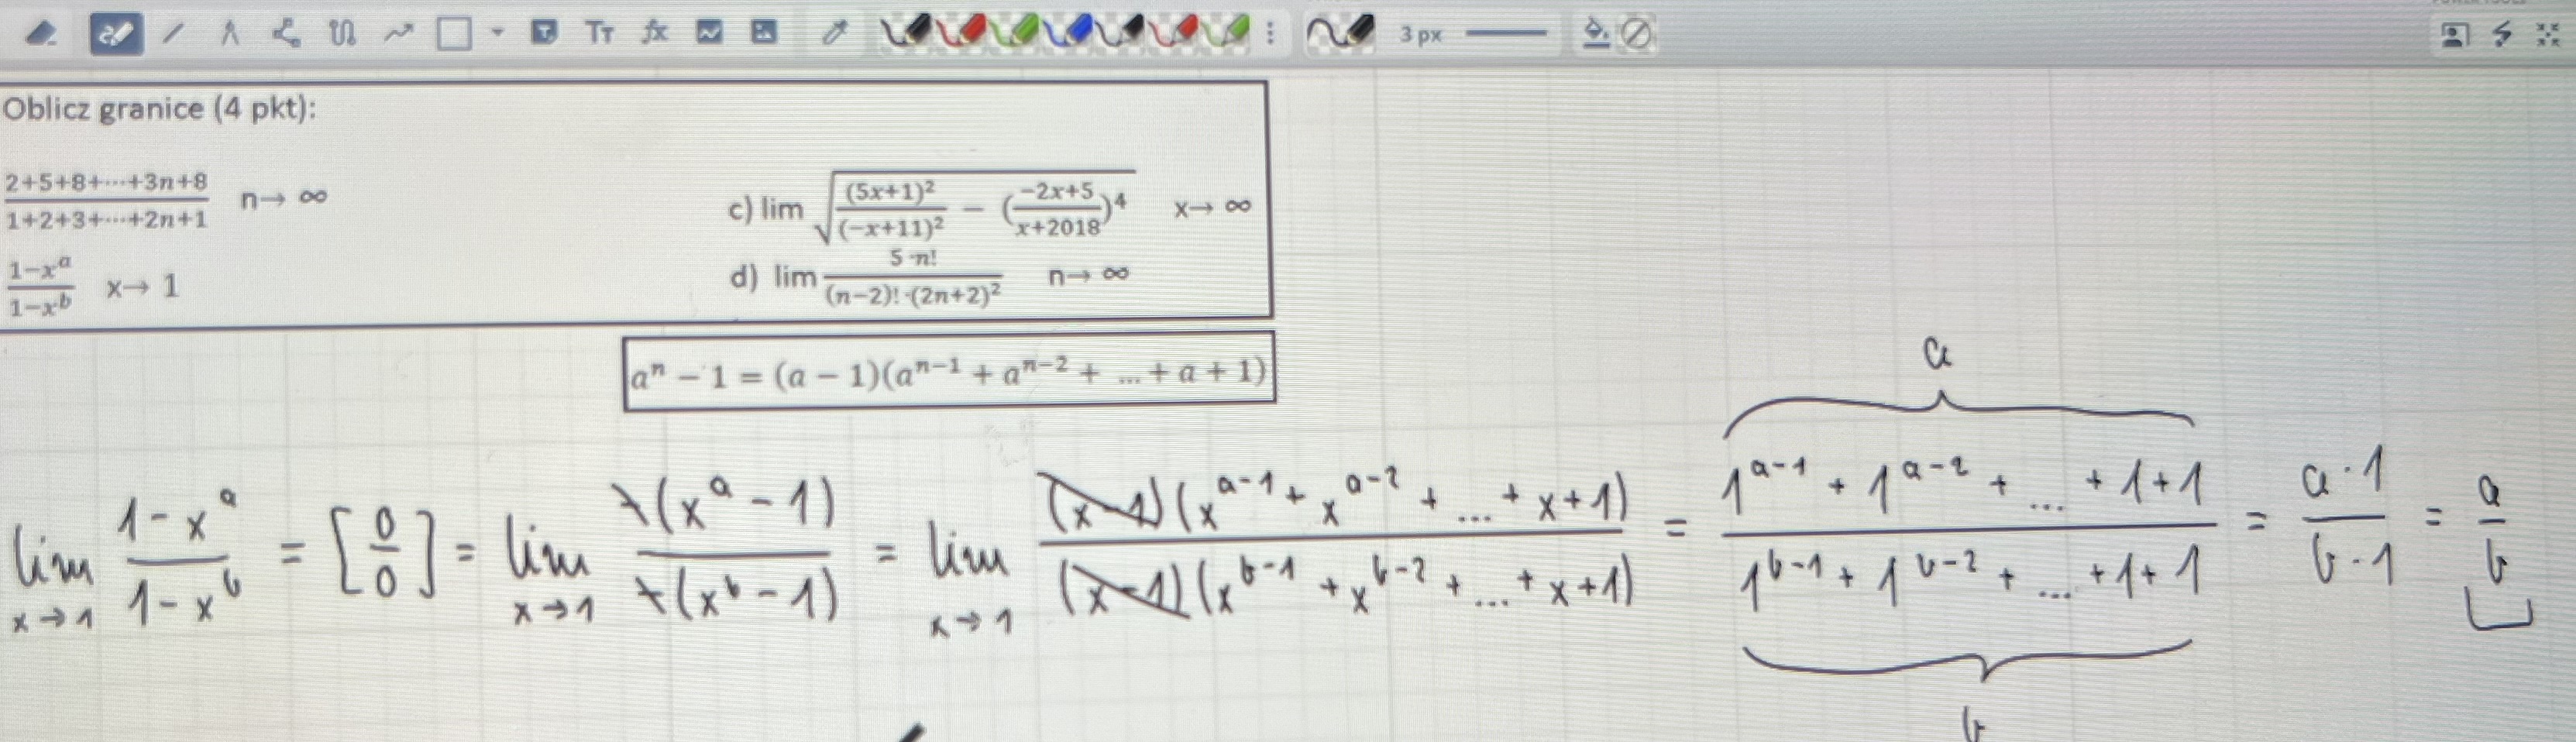 Tт fx 3 px
Oblicz granice (4 pkt):
\frac{2+5+8+⋯+3n+8}{1+2+3+⋯+2n+1} n→ ∞
c) lim \sqrt{\frac{(5x+1)^2}{(-x+11)^2} - (\frac{-2x+5}{x+2018})^4} x→ ∞
\frac{1-x^a}{1-x^b} x→ 1
d) lim \frac{5·n!}{(n-2)!·(2n+2)^2} n→ ∞
a^n - 1 = (a - 1)(a^{n-1} + a^{n-2} + ... + a + 1)
a
lim_{x→1} \frac{1-x^a}{1-x^b} = [\frac{0}{0}] = lim_{x→1} \frac{-(x^a-1)}{-(x^b-1)} = lim_{x→1} \frac{(x-1)(x^{a-1}+x^{a-2}+...+x+1)}{(x-1)(x^{b-1}+x^{b-2}+...+x+1)} = \frac{1^{a-1}+1^{a-2}+...+1+1}{1^{b-1}+1^{b-2}+...+1+1} = \frac{a·1}{b·1} = \frac{a}{b}
b